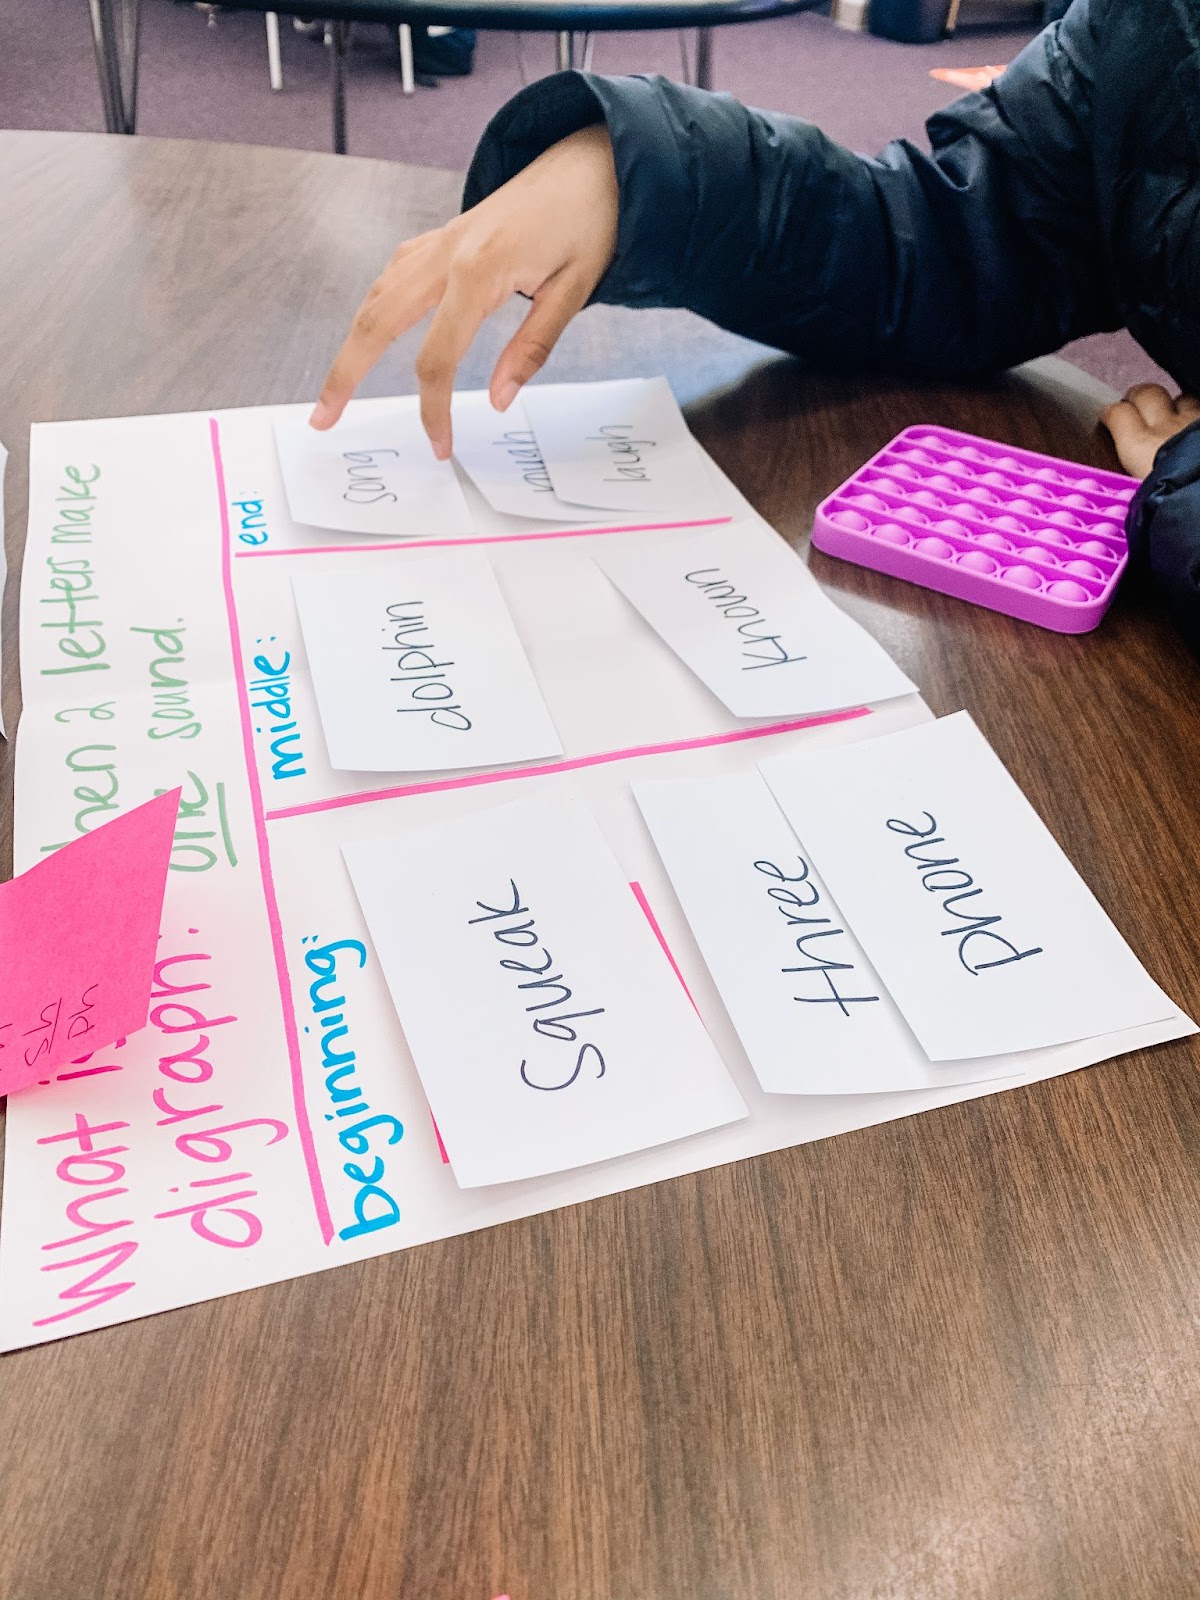 What
digraph:
letters make
one sound.
sh
ph
beginning:
Squeak
Three
phone
middle:
dolphin
known
end:
song
laugh